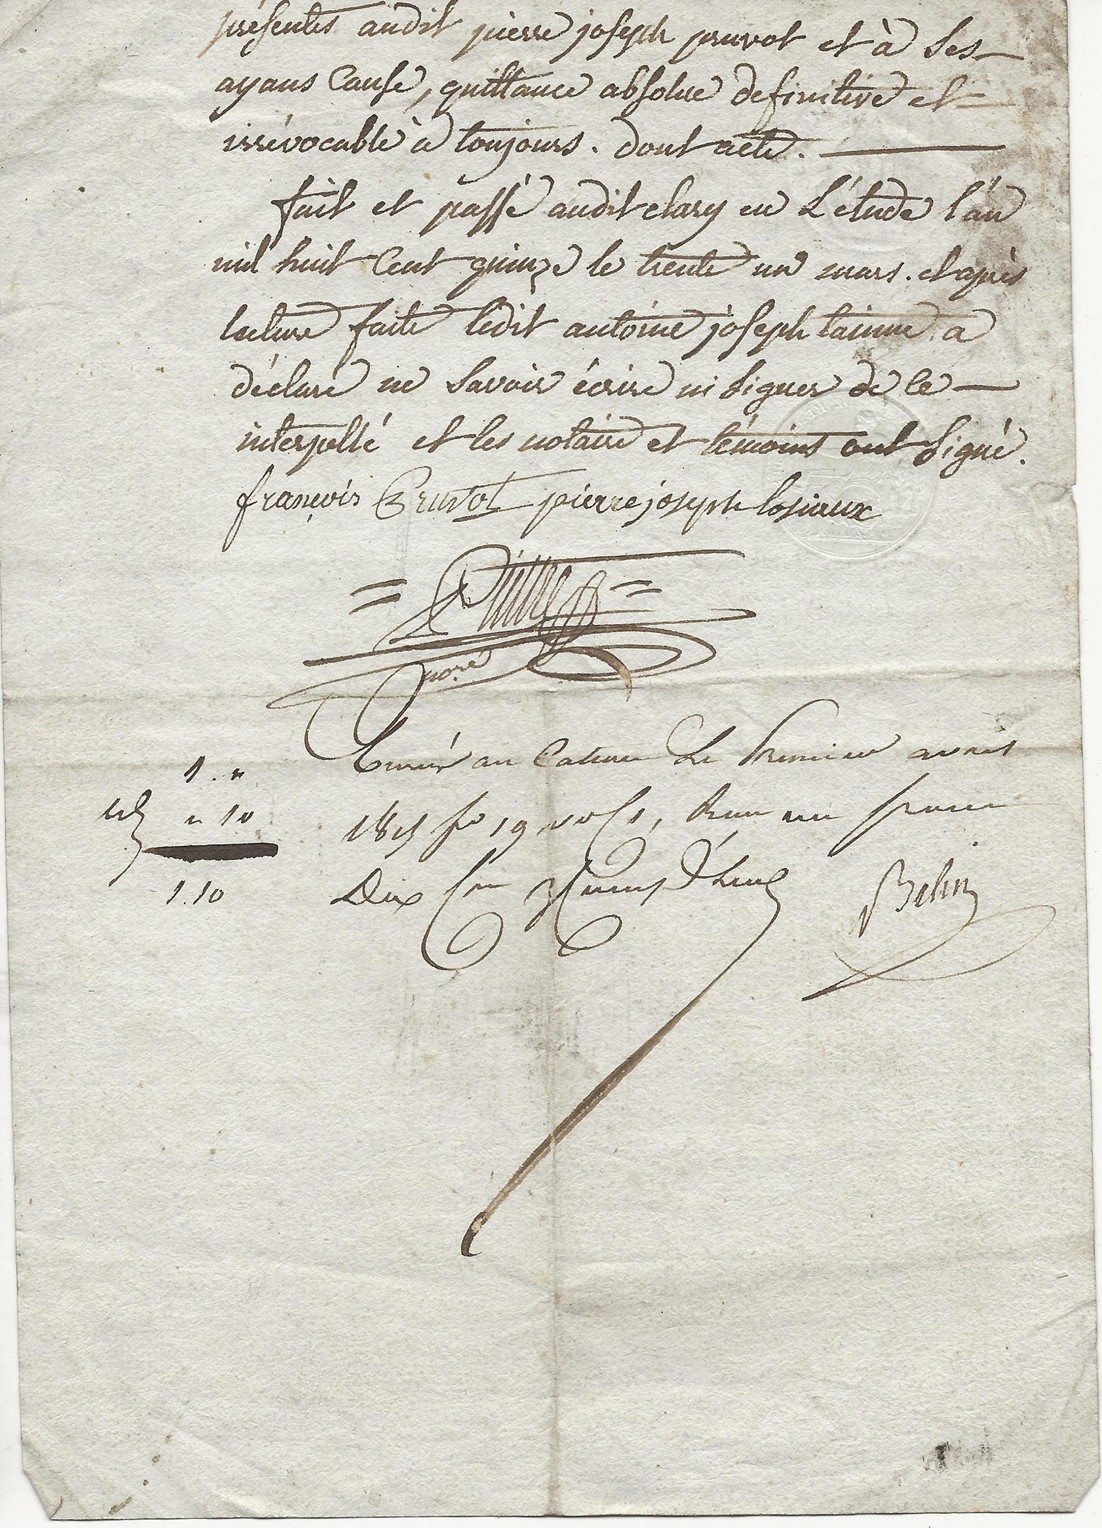 présentes audit pierre joseph pruvot et à ses
ayans Cause, quittance absolue definitive et
irrévocable à toujours. dont acte.
fait et passé audit clary en L'étude l'an
mil huit Cent quinze le trente un mars. et après
lecture faite ledit antoine joseph lainne a
déclaré ne Savoir écrire ni Signer de ce
interpellé et les notaire et témoins ont Signé.
françois Pruvot pierre joseph losieaux
nore
1. "
au Cateau Le Premier avril
" 10
1815 fo 19 vo C 1, Reçu un franc
1.10
Dix Cmes
Belin